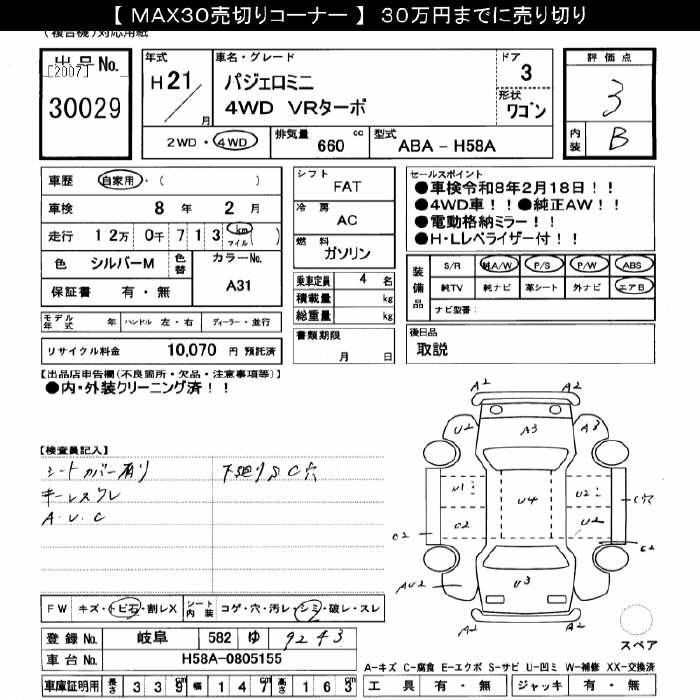 【 MAX30売切りコーナー 】 30万円までに売り切り
(複合機)対応用紙
出品No.
[2007]
30029
年式
H21/月
車名・グレード
パジェロミニ
4WD VRターボ
ドア
3
形状
ワゴン
評価点
3
内装
B
2WD・4WD
排気量
660 cc
型式
ABA - H58A
車歴
自家用・( )
車検
8 年 2 月
走行
12万 0千 713 km マイル ( )
色
シルバーM
色替
カラーNo.
A31
保証書 有・無
シフト
FAT
冷房
AC
燃料
ガソリン
乗車定員 4 名
積載量 kg
総重量 kg
書類期限
月 日
セールスポイント
●車検令和8年2月18日!!
●4WD車!!●純正AW!!
●電動格納ミラー!!
●H・Lレベライザー付!!
装備品
S/R 純A/W P/S P/W ABS
純TV 純ナビ 革シート 外ナビ エアB
ナビ型番:
モデル年式 年 ハンドル 左・右 ディーラー・並行
リサイクル料金 10,070 円 預託済
後日品
取説
【出品店申告欄(不良箇所・欠品・注意事項等)】
●内・外装クリーニング済!!
【検査員記入】
シートカバー有り
キーレスクレ
A.U.C
下廻りSC穴
A2 A2
U2 A3 A3
U1 U4 U2 C穴
C2 C2 U2 E2
AU2 U3
A2
スペア
FW キズ・トビ石・割レX
シート内装 コゲ・穴・汚レ・シミ・破レ・スレ
登録No. 岐阜 582 ゆ 9243
車台No. H58A-0805155
車庫証明用 長さ 339 cm 幅 147 cm 高さ 163 cm
A-キズ C-腐食 E-エクボ S-サビ U-凹ミ W-補修 XX-交換済
工具 有・無 ジャッキ 有・無